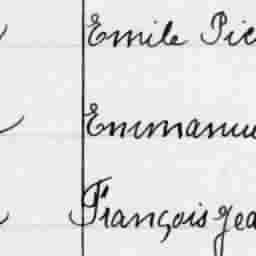 Emile Pic
Emmanue
François Jea